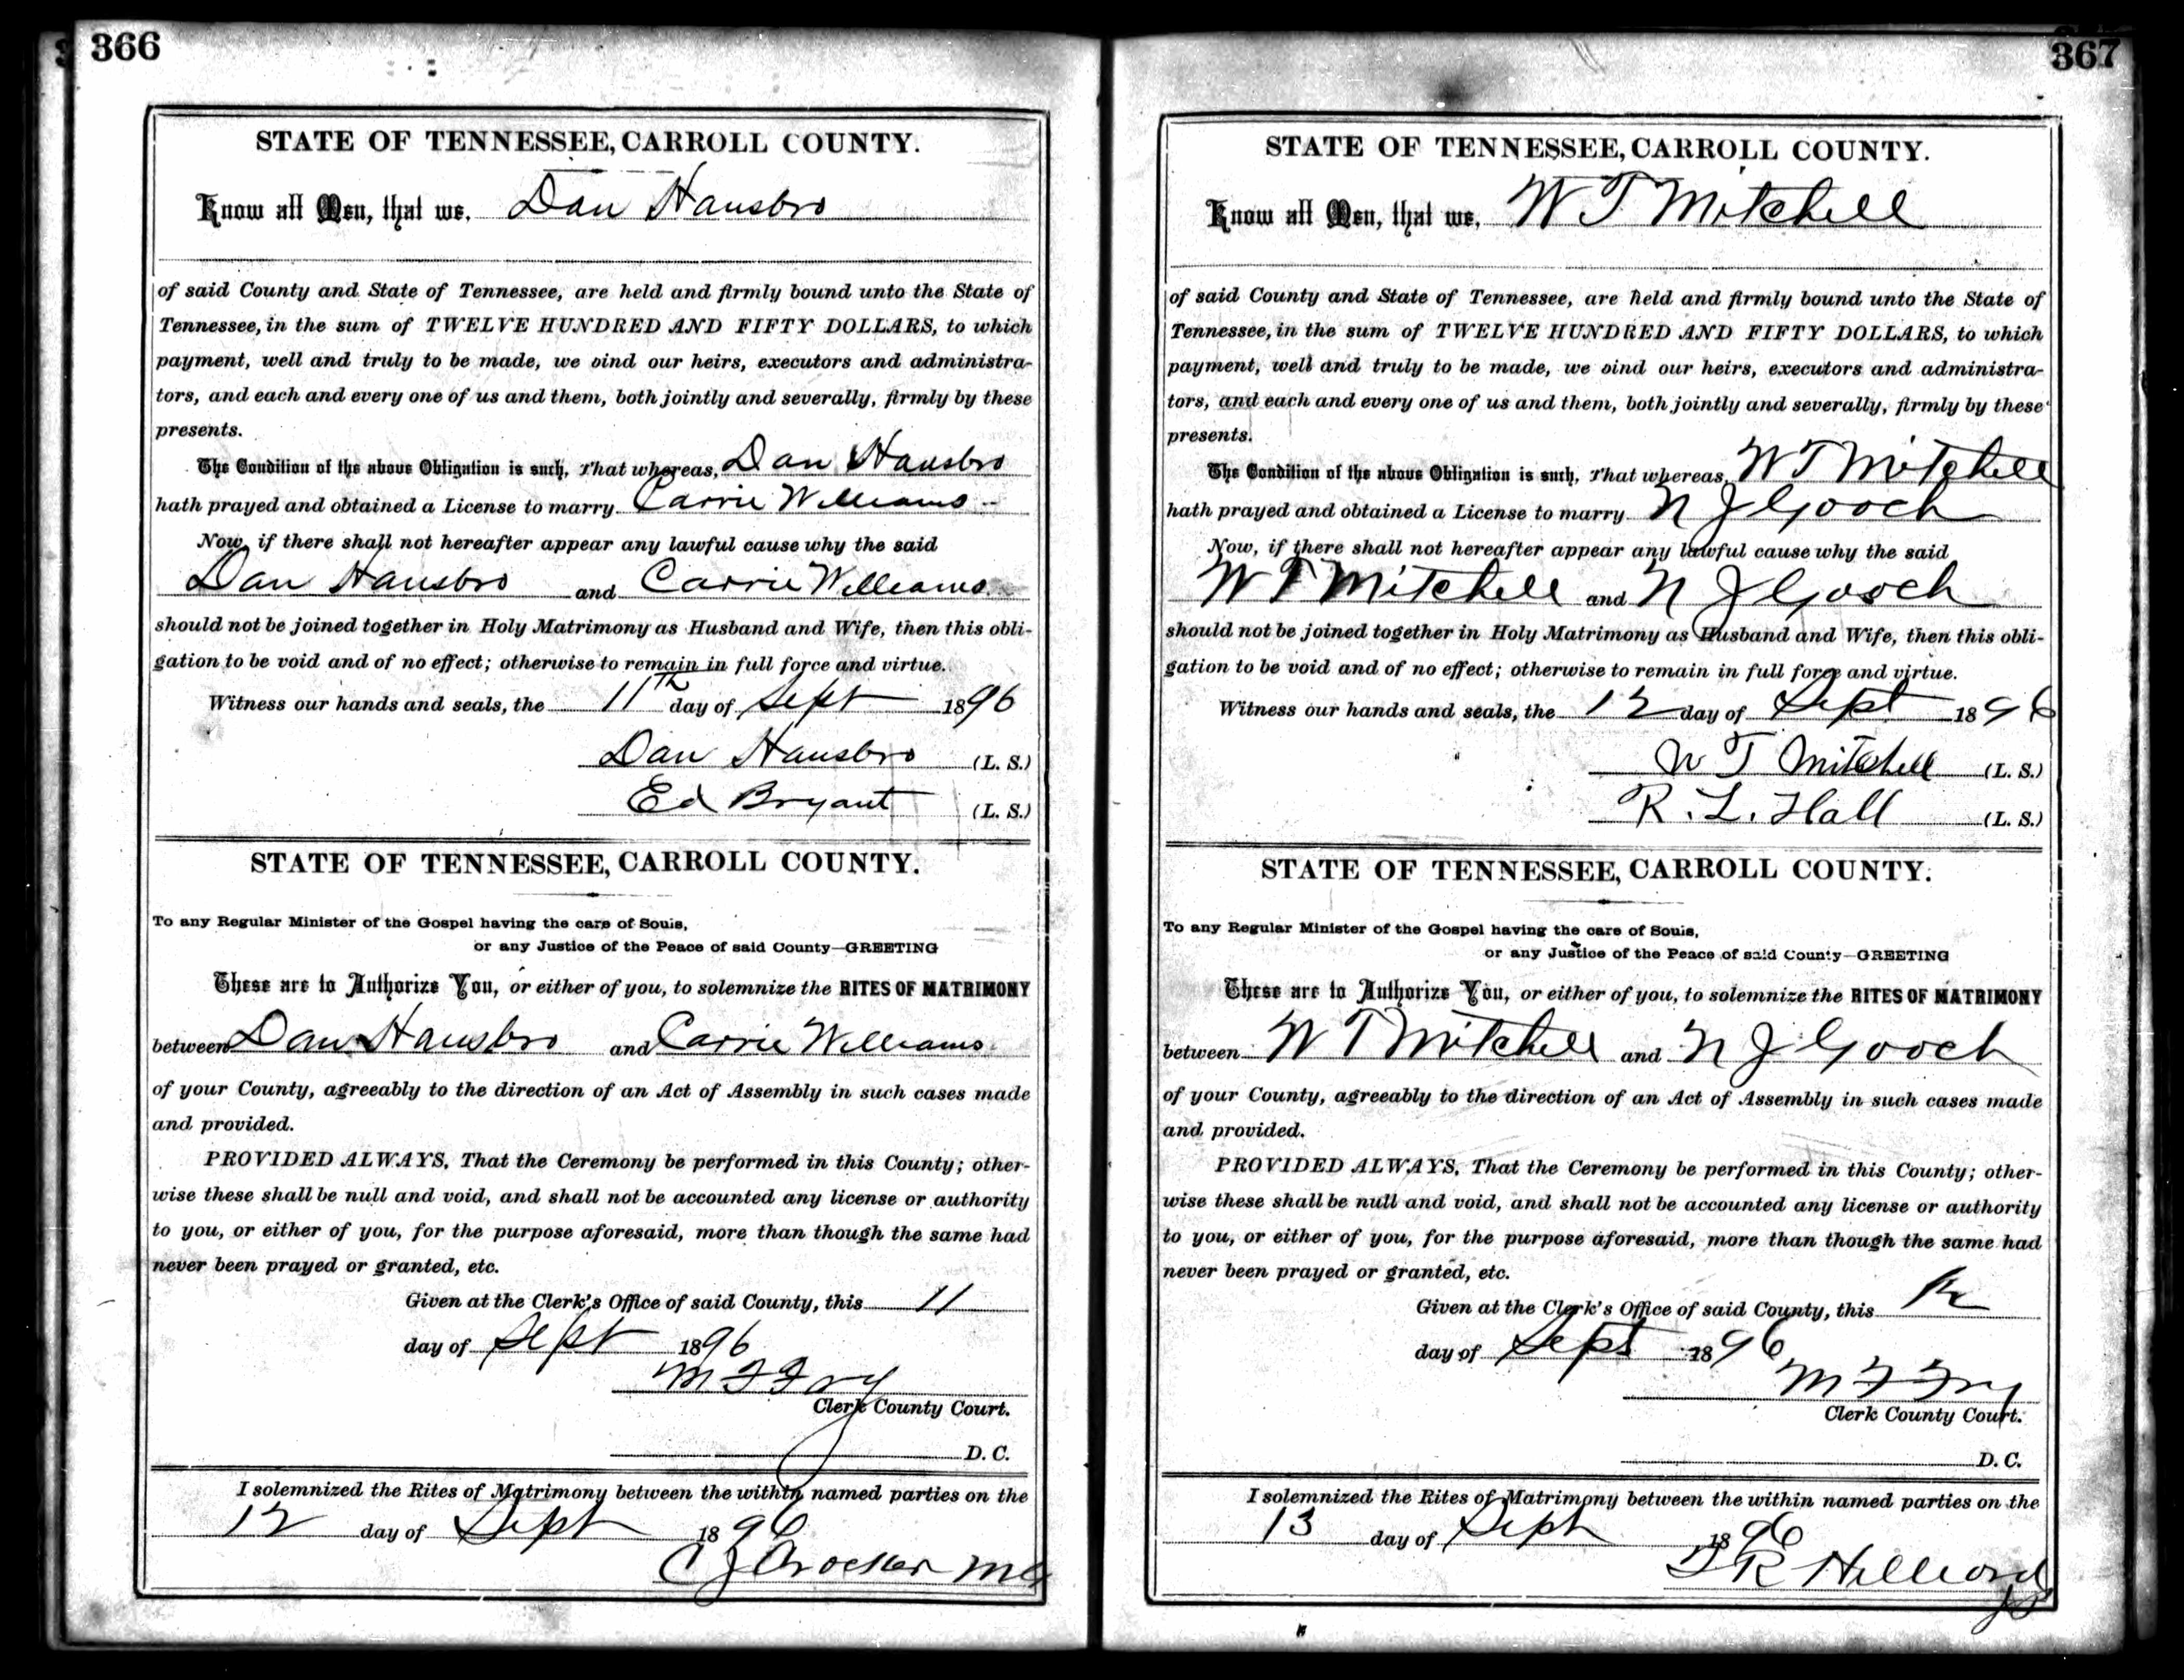 366
STATE OF TENNESSEE, CARROLL COUNTY.
Know all Men, that we, Dan Hansbro
of said County and State of Tennessee, are held and firmly bound unto the State of
Tennessee, in the sum of TWELVE HUNDRED AND FIFTY DOLLARS, to which
payment, well and truly to be made, we oind our heirs, executors and administra-
tors, and each and every one of us and them, both jointly and severally, firmly by these
presents.
The Condition of the above Obligation is such, That whereas, Dan Hansbro
hath prayed and obtained a License to marry Carrie Williams
Now, if there shall not hereafter appear any lawful cause why the said
Dan Hansbro and Carrie Williams
should not be joined together in Holy Matrimony as Husband and Wife, then this obli-
gation to be void and of no effect; otherwise to remain in full force and virtue.
Witness our hands and seals, the 11th day of Sept 1896
Dan Hansbro (L. S.)
Ed Bryant (L. S.)
STATE OF TENNESSEE, CARROLL COUNTY.
To any Regular Minister of the Gospel having the care of Souls,
or any Justice of the Peace of said County—GREETING
These are to Authorize You, or either of you, to solemnize the RITES OF MATRIMONY
between Dan Hansbro and Carrie Williams
of your County, agreeably to the direction of an Act of Assembly in such cases made
and provided.
PROVIDED ALWAYS, That the Ceremony be performed in this County; other-
wise these shall be null and void, and shall not be accounted any license or authority
to you, or either of you, for the purpose aforesaid, more than though the same had
never been prayed or granted, etc.
Given at the Clerk's Office of said County, this 11
day of Sept 1896
M F Fry
Clerk County Court.
D. C.
I solemnized the Rites of Matrimony between the within named parties on the
12 day of Sept 1896
C J Crocker MG
367
STATE OF TENNESSEE, CARROLL COUNTY.
Know all Men, that we, W T Mitchell
of said County and State of Tennessee, are held and firmly bound unto the State of
Tennessee, in the sum of TWELVE HUNDRED AND FIFTY DOLLARS, to which
payment, well and truly to be made, we oind our heirs, executors and administra-
tors, and each and every one of us and them, both jointly and severally, firmly by these
presents.
The Condition of the above Obligation is such, That whereas, W T Mitchell
hath prayed and obtained a License to marry N J Gooch
Now, if there shall not hereafter appear any lawful cause why the said
W T Mitchell and N J Gooch
should not be joined together in Holy Matrimony as Husband and Wife, then this obli-
gation to be void and of no effect; otherwise to remain in full force and virtue.
Witness our hands and seals, the 12 day of Sept 1896
W T Mitchell (L. S.)
R. L. Hall (L. S.)
STATE OF TENNESSEE, CARROLL COUNTY.
To any Regular Minister of the Gospel having the care of Souls,
or any Justice of the Peace of said County—GREETING
These are to Authorize You, or either of you, to solemnize the RITES OF MATRIMONY
between W T Mitchell and N J Gooch
of your County, agreeably to the direction of an Act of Assembly in such cases made
and provided.
PROVIDED ALWAYS, That the Ceremony be performed in this County; other-
wise these shall be null and void, and shall not be accounted any license or authority
to you, or either of you, for the purpose aforesaid, more than though the same had
never been prayed or granted, etc.
Given at the Clerk's Office of said County, this 12
day of Sept 1896
M F Fry
Clerk County Court.
D. C.
I solemnized the Rites of Matrimony between the within named parties on the
13 day of Sept 1896
R Hilliard